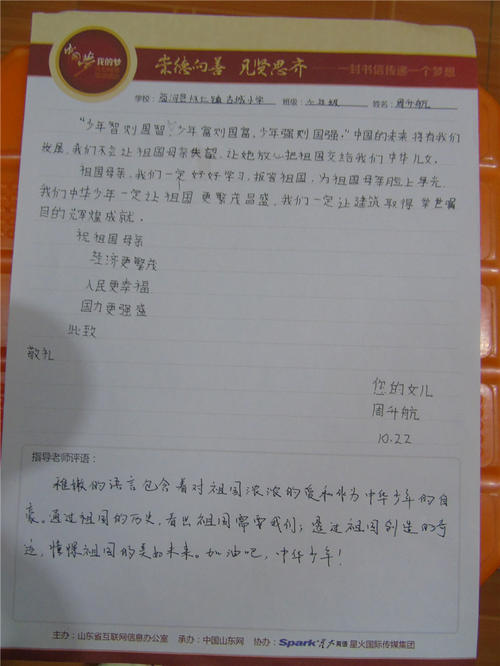 中国梦 我的梦
崇德向善 见贤思齐 一封书信传递一个梦想
学校: 古城小学 班级: 六年级 姓名: 周升航
“少年智则国智，少年富则国富，少年强则国强，”中国的未来将有我们
发展，我们不会让祖国母亲失望，让她放心把祖国交给我们中华儿女，
祖国母亲，我们一定好好学习，报答祖国，为祖国母亲脸上争光，
我们中华少年一定让祖国更繁茂昌盛，我们一定让建筑取得举世瞩
目的辉煌成就，
祝祖国母亲
经济更繁茂
人民更幸福
国力更强盛
此致
敬礼
您的女儿
周升航
10.22
指导老师评语:
稚嫩的语言包含着对祖国浓浓的爱和作为中华少年的自
豪。通过祖国的历史，看出祖国需要我们；透过祖国创造的奇
迹，憧憬祖国的美好未来。加油吧，中华少年！
主办：山东省互联网信息办公室 承办：中国山东网 协办：Spark星火英语 星火国际传媒集团